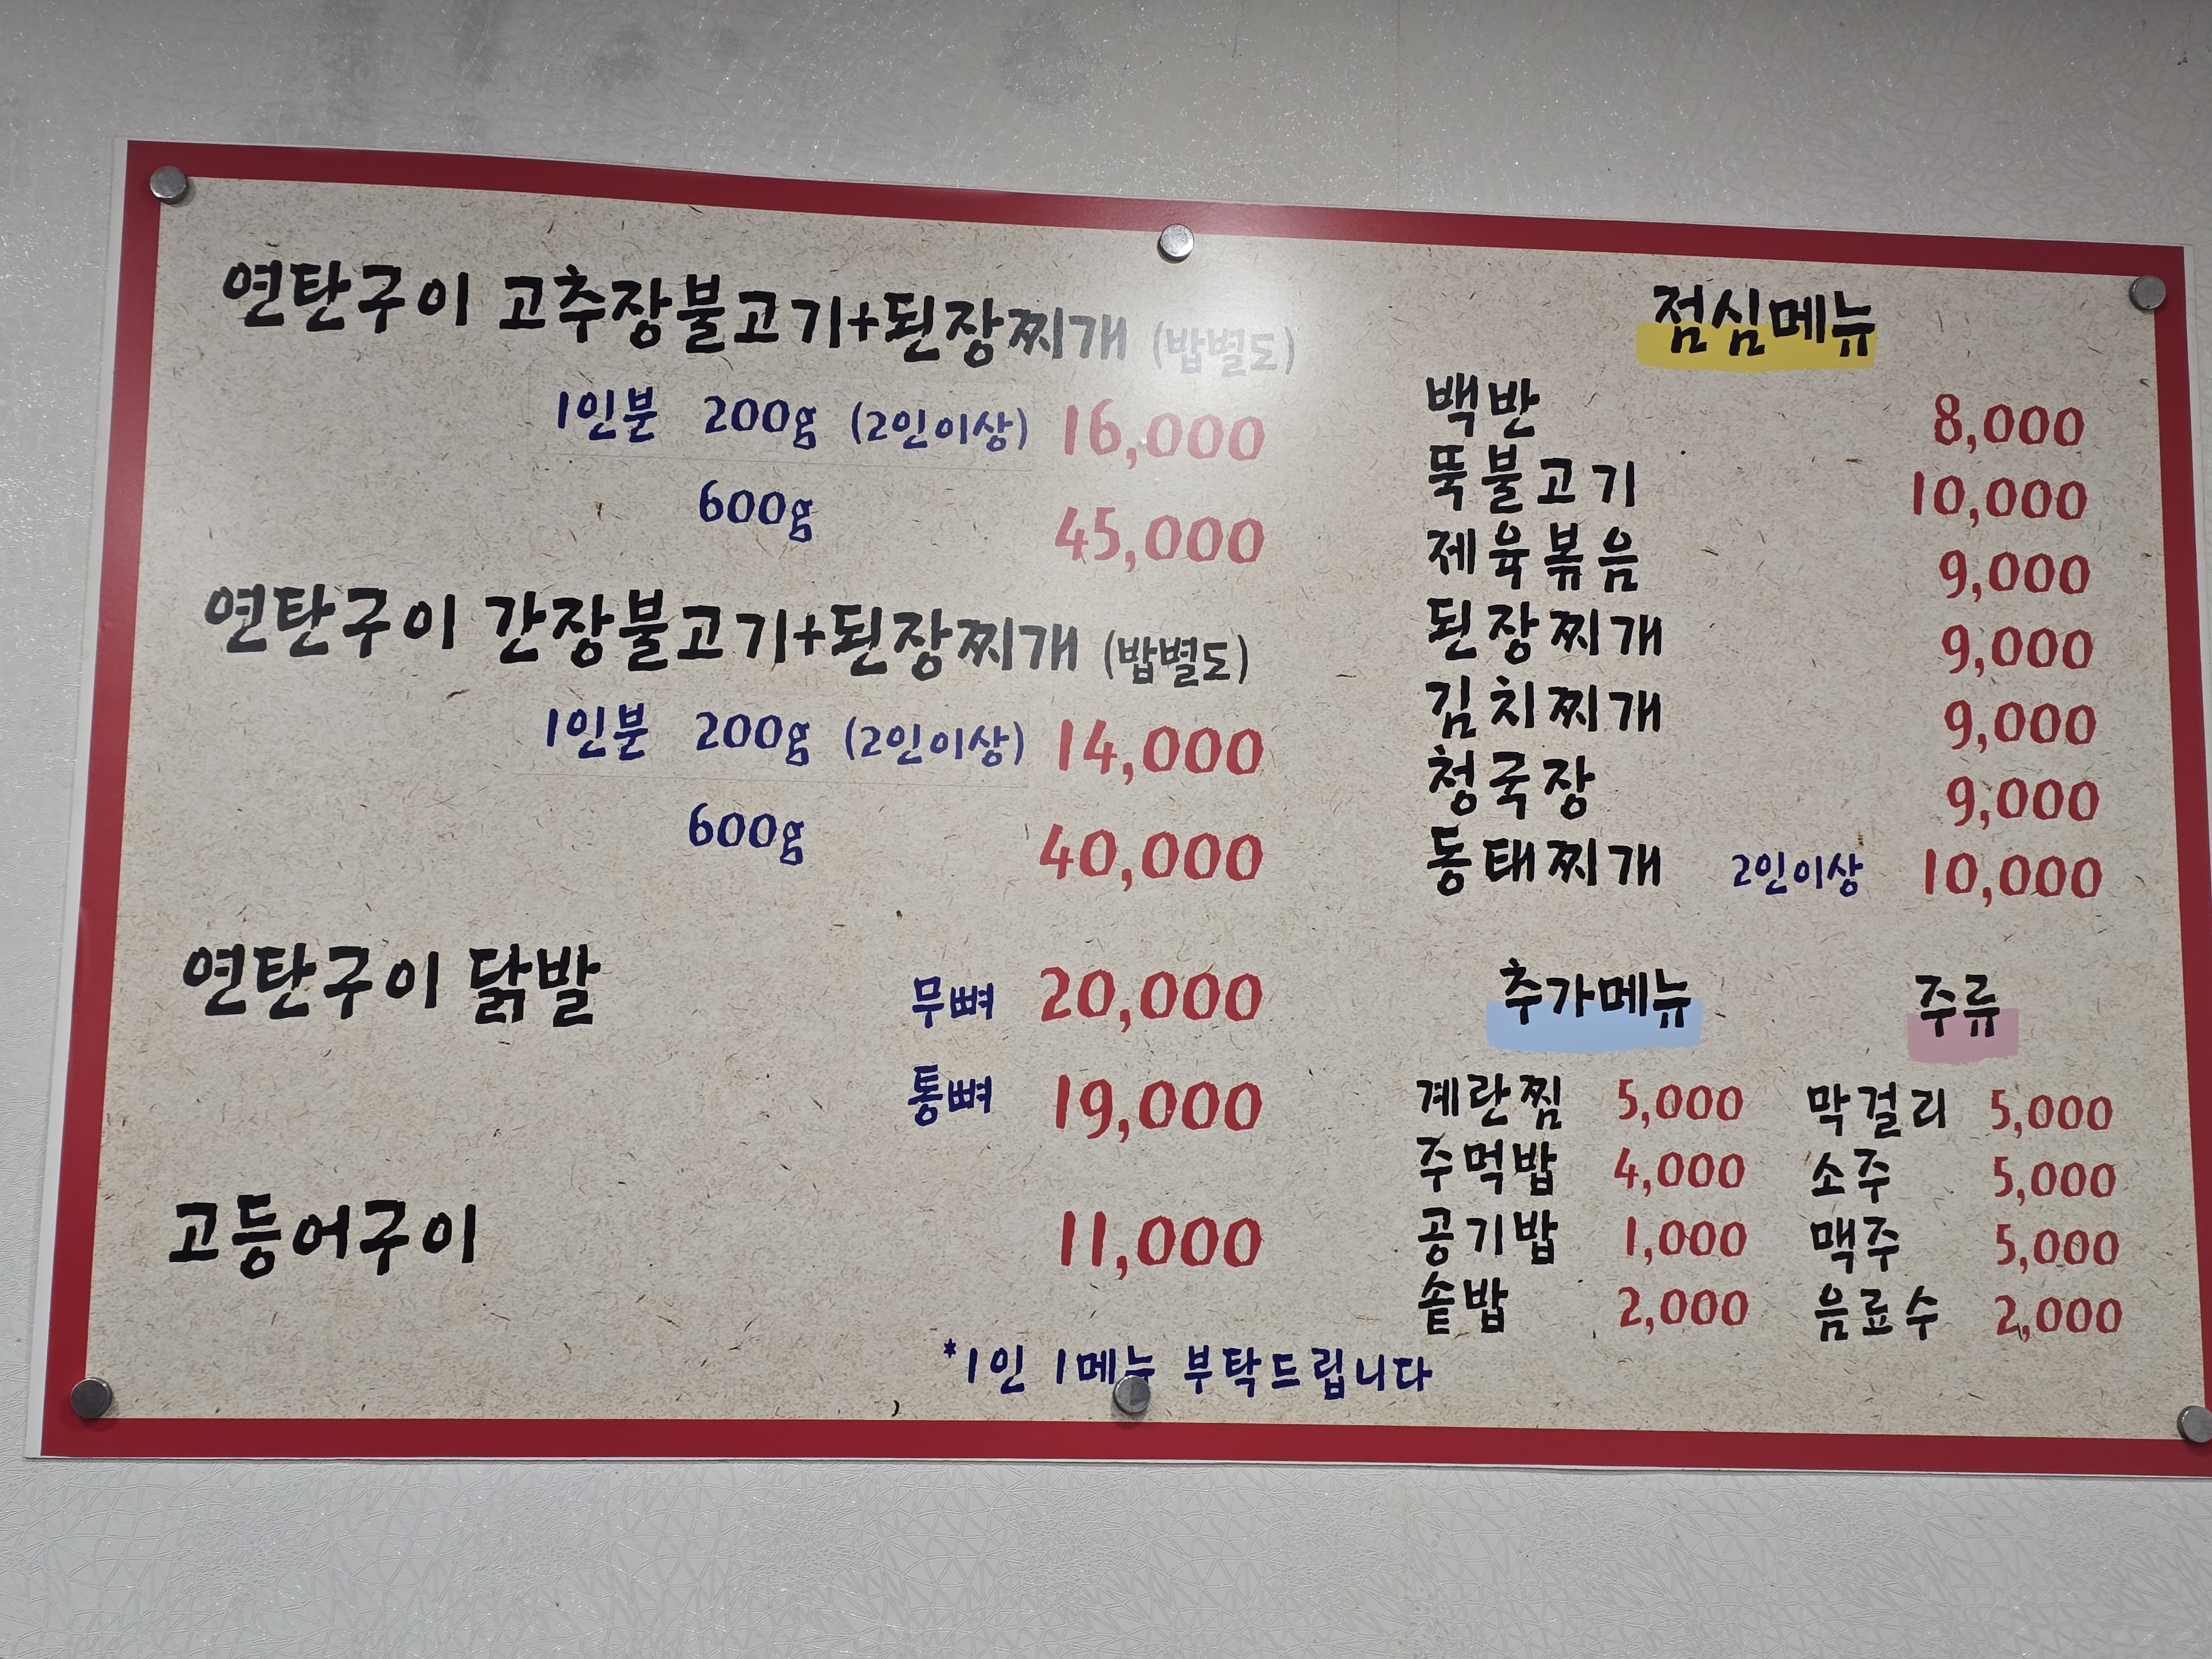 연탄구이 고추장불고기+된장찌개 (밥별도)
1인분 200g (2인이상) 16,000
600g 45,000
연탄구이 간장불고기+된장찌개 (밥별도)
1인분 200g (2인이상) 14,000
600g 40,000
연탄구이 닭발 무뼈 20,000
통뼈 19,000
고등어구이 11,000
점심메뉴
백반 8,000
뚝불고기 10,000
제육볶음 9,000
된장찌개 9,000
김치찌개 9,000
청국장 9,000
동태찌개 2인이상 10,000
추가메뉴
계란찜 5,000
주먹밥 4,000
공기밥 1,000
솥밥 2,000
주류
막걸리 5,000
소주 5,000
맥주 5,000
음료수 2,000
*1인 1메뉴 부탁드립니다